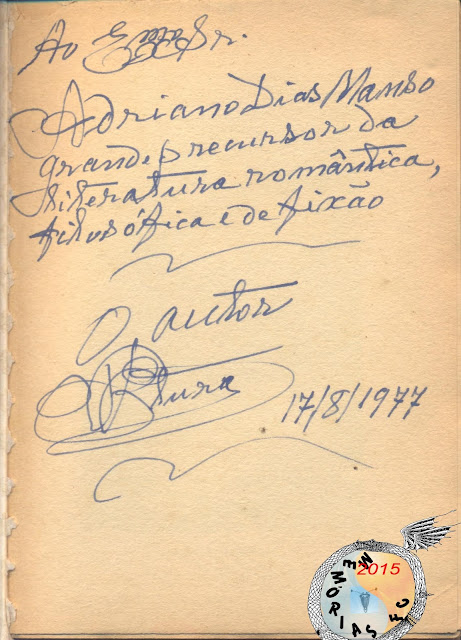 Ao Exmo Sr.
Adriano Dias Manso
grande precursor da
literatura romântica,
filosófica e de fixão
O autor
17/8/1977
2015
MEMÓRIAS FC